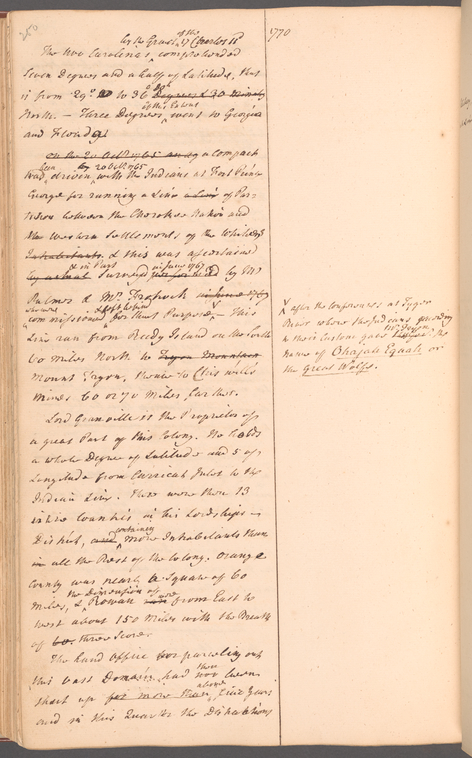 260
1770
by the Grant of the 17 Charles IId
The two Carolina's comprehended
Seven Degrees and a half of Latitude, that
is from 29° to 36 Degrees & 30 Minutes
North. — Three Degrees of this Extent went to Georgia
and Florida
On the 20 Octr. 1765 a Compact
was driven with the Indians at Fort Prince
George for running a Line of Par-
tition between the Cherokee Nation and
the Western Settlements of the Whites
Inhabitants. & this was ascertained
by actual & in Part Survey in June 1767 by Mr.
Palmer & Mr. Frohock in June 1767
commissioned for that Purpose — This
Line ran from Reedy Island on the South
60 Miles North to Tryon Mountain
Mount Tryon, thence to Chiswell's
Mines 60 or 70 Miles further.
Lord Granville is the Proprietor of
a great Part of this Colony. He holds
a whole Degree of Latitude and 5 of
Longitude from Currituck Inlet to the
Indian Line. There were then 13
entire Counties in his Lordship's
District, containing more Inhabitants than
in all the Rest of the Colony. Orange
County was nearly a Square of 60
Miles, & the Dimension of Rowan were from East to
West about 150 Miles with the Breadth
of 60. three Score.
The Land Office for parceling out
this vast Domain had then been
shut up for more than above five Years
and in this Quarter the Distractions
after the Conferences at Tyger
River where the Indians according
to their Custom gave Mr. Tryon the
Name of Ohaiah Equah or
the Great Wolf.